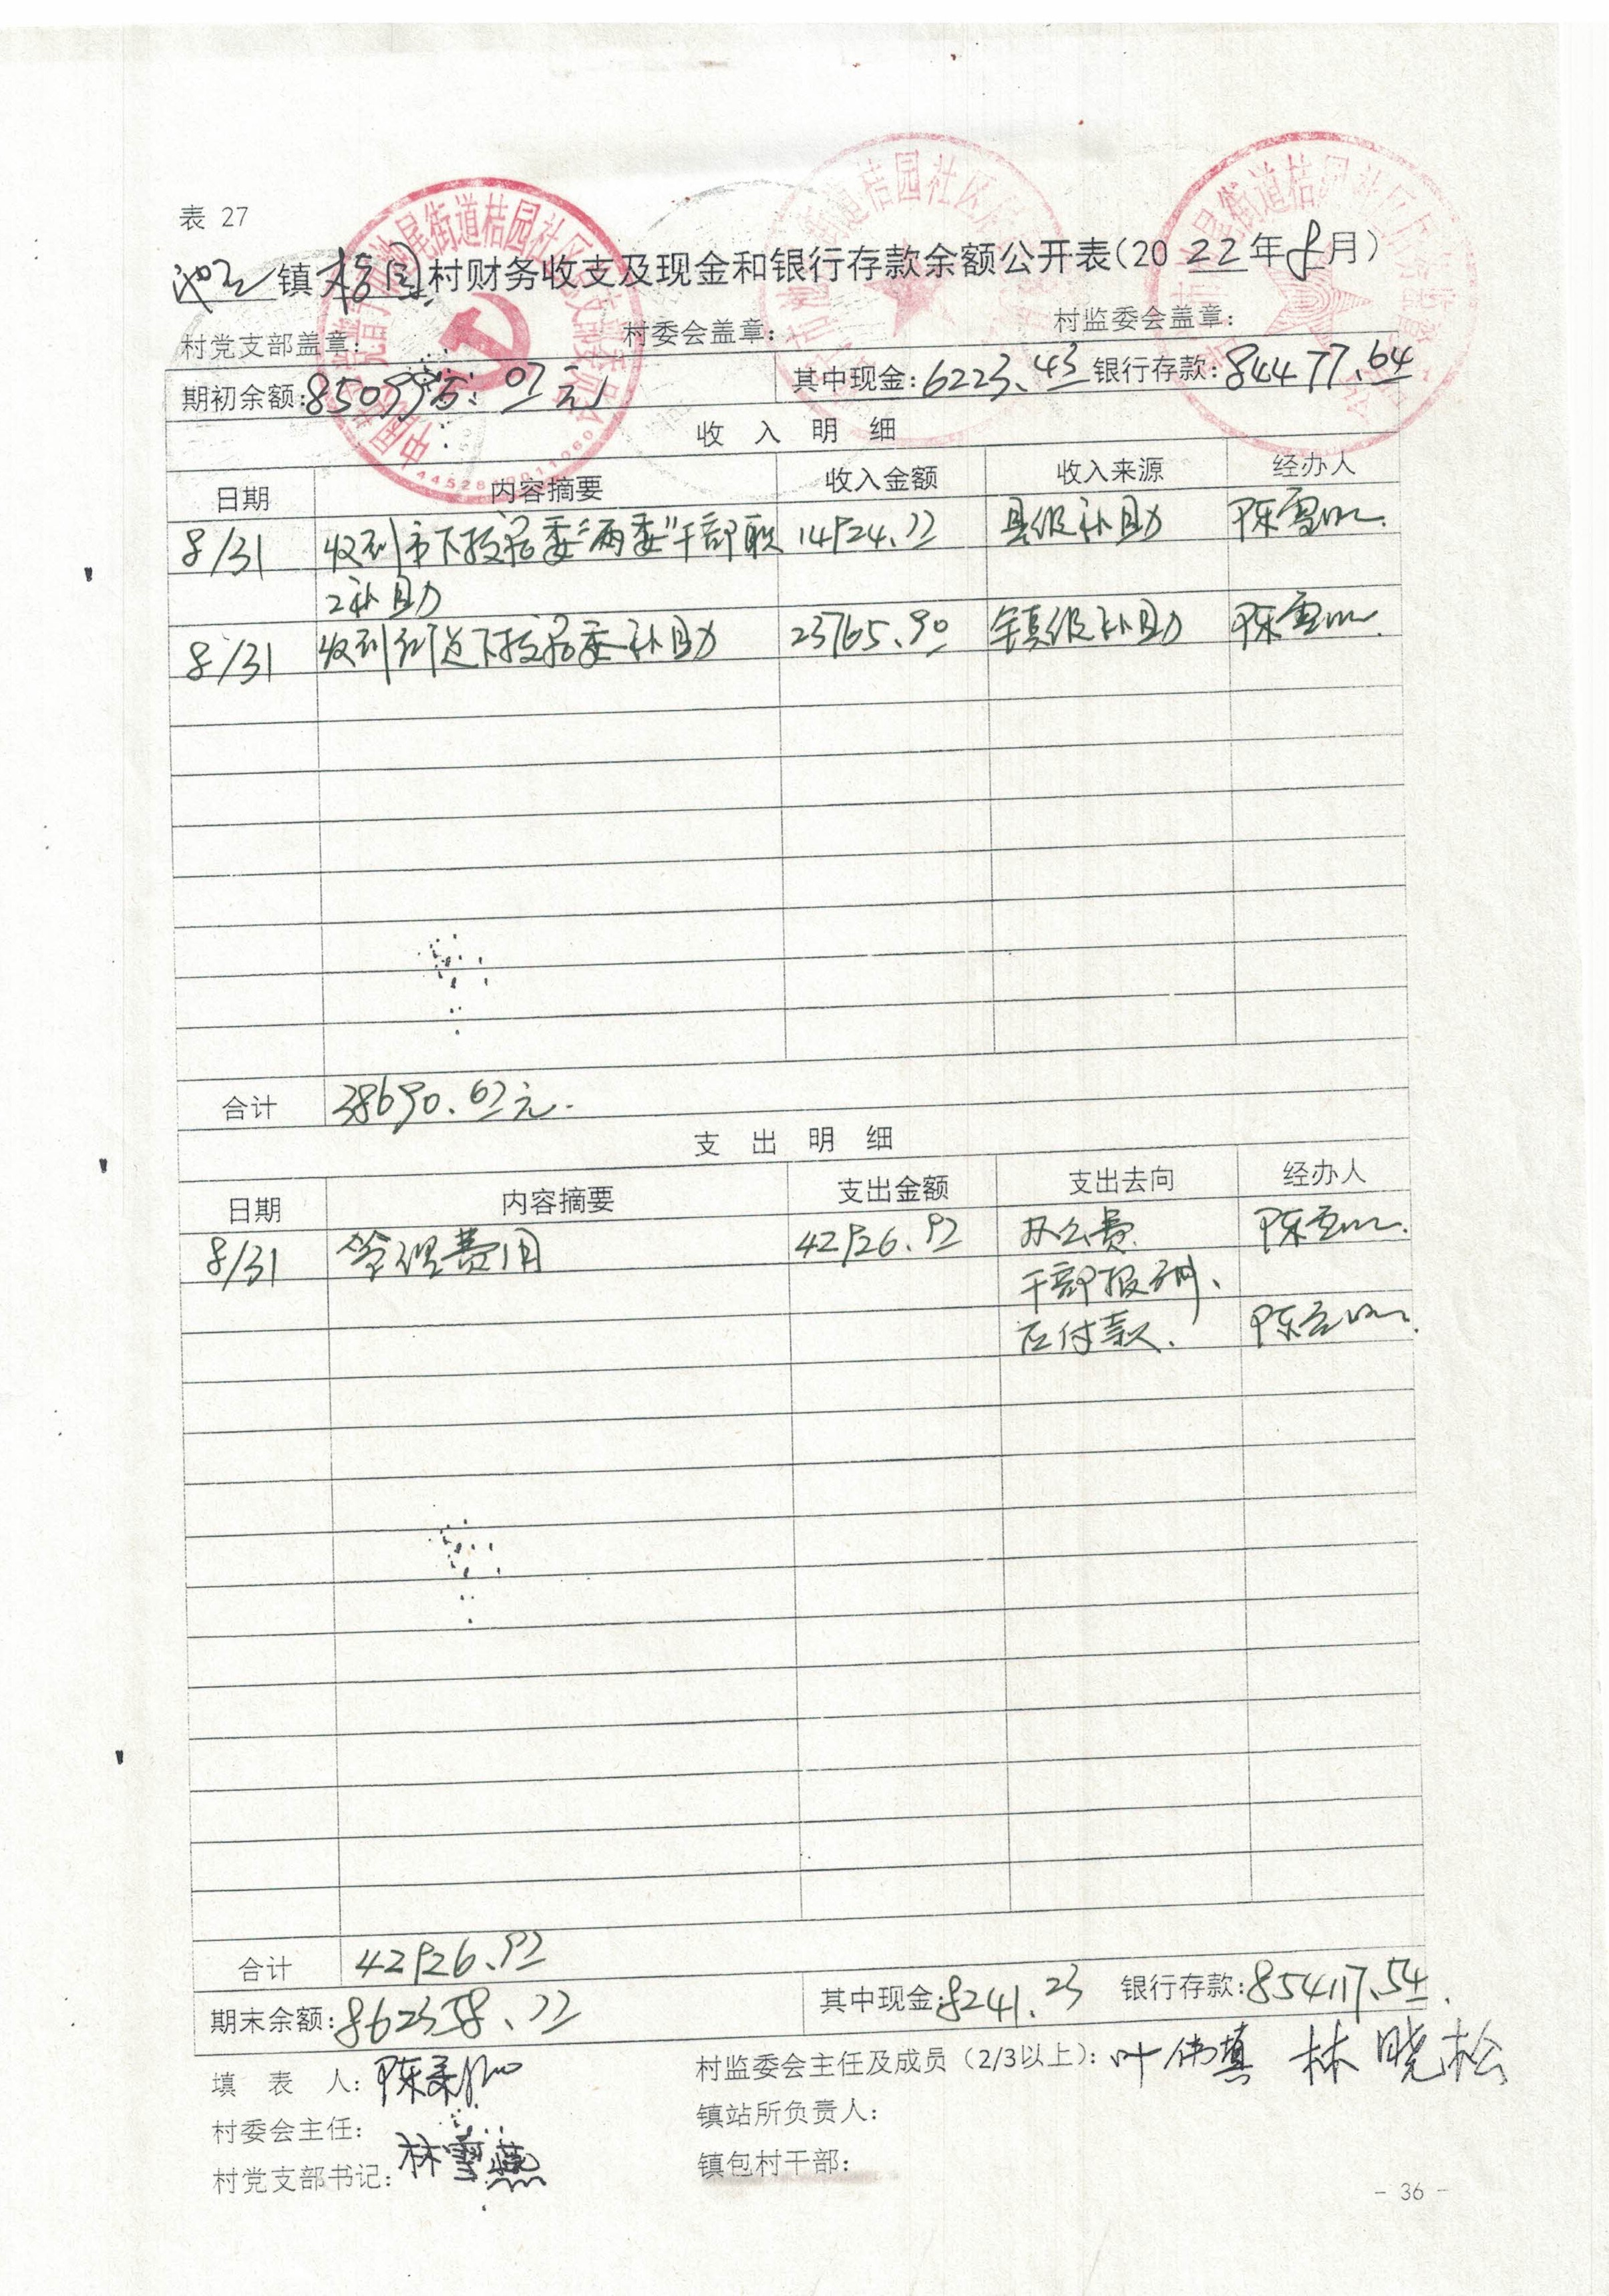 表 27
池尾镇桔园村财务收支及现金和银行存款余额公开表(2022年8月)
村党支部盖章: 村委会盖章: 村监委会盖章:
期初余额: 元 其中现金:6223.43 银行存款:84477.64
收 入 明 细
日期 内容摘要 收入金额 收入来源 经办人
8/31 收到市下拨居委"两委"干部职 14924.77 县级补助 陈雪
工补助
8/31 收到街道下拨居委补助 23765.90 镇级补助 陈雪
合计 38690.67元.
支 出 明 细
日期 内容摘要 支出金额 支出去向 经办人
8/31 管理费用 42926.92 办公费 陈雪
干部报酬、
应付款. 陈雪
合计 42926.92
期末余额:862358.77 其中现金:8241.23 银行存款:854117.54.
填 表 人:陈
村监委会主任及成员(2/3以上): 叶伟填 林晓松
村委会主任:
镇站所负责人:
村党支部书记: 林雪燕
镇包村干部:
- 36 -